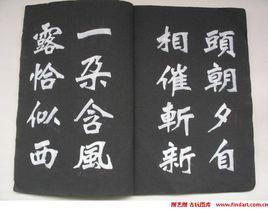 頭朝夕自
相催斬新
一朵含風
露恰似西
古玩图库 www.findart.com.cn